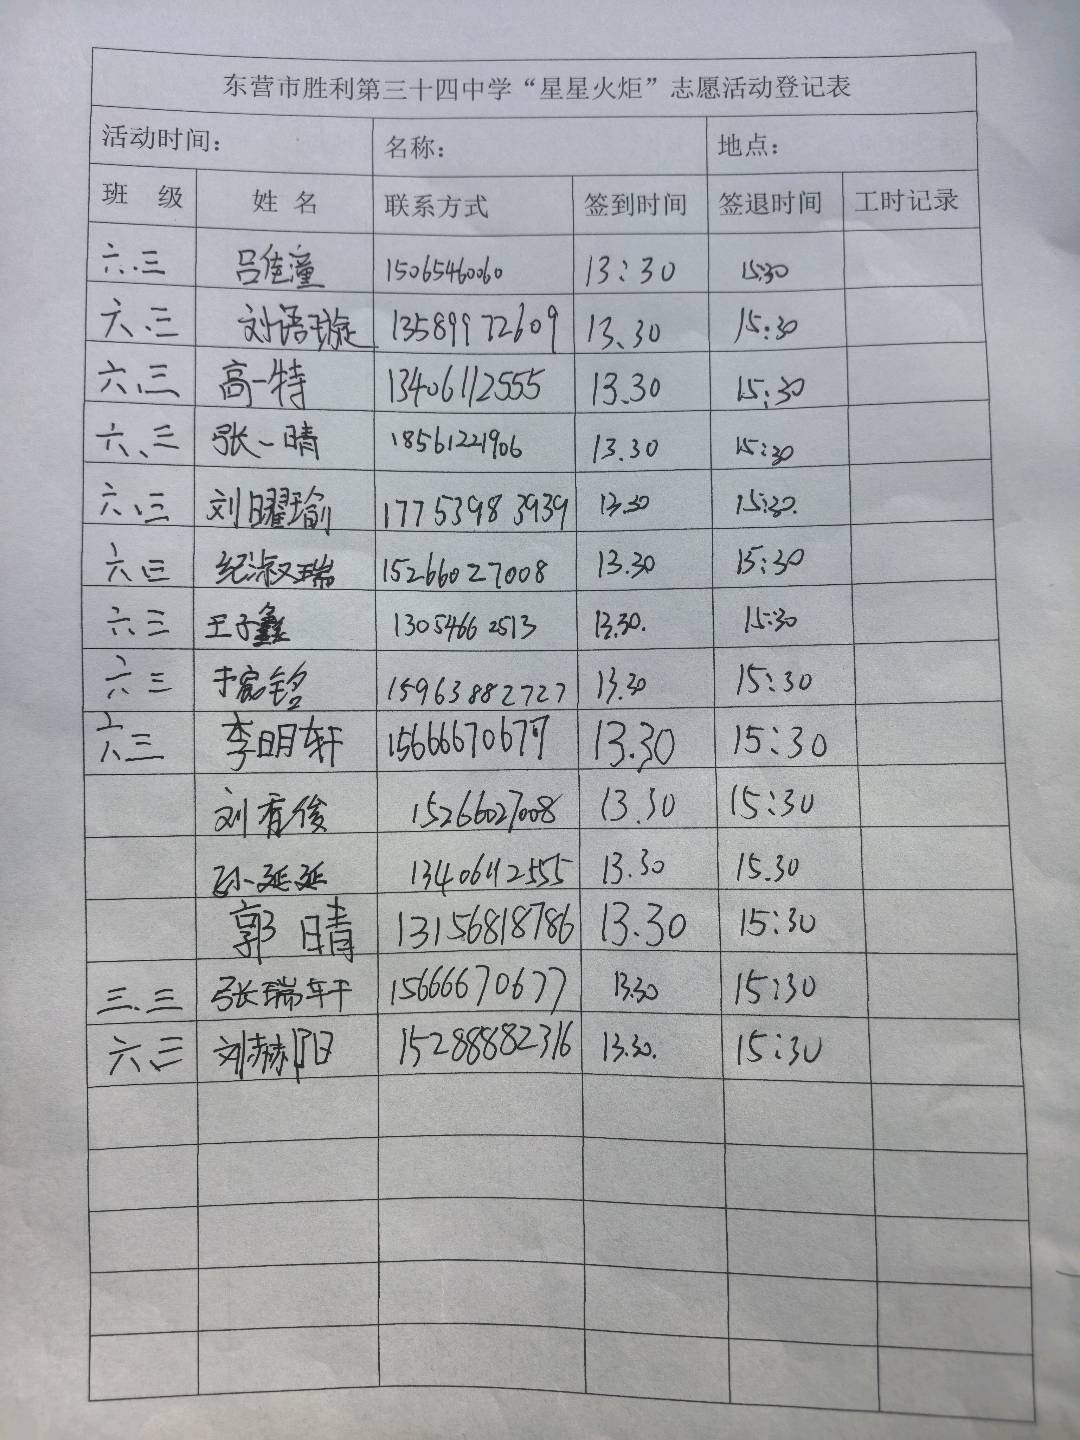 东营市胜利第三十四中学“星星火炬”志愿活动登记表
活动时间： 名称： 地点：
班 级 姓 名 联系方式 签到时间 签退时间 工时记录
六.三 吕佳潼 15065460060 13:30 15:30
六.三 刘语璇 13589972609 13.30 15:30
六.三 高一特 13406112555 13.30 15:30
六.三 张一晴 18561221906 13.30 15:30
六.三 刘曜瑜 17753983939 13.30 15:30.
六三 纪淑瑞 15266027008 13.30 15:30
六三 王子鑫 13054662513 13.30. 15:30
六三 于家铭 15963882727 13.30 15:30
六三 李明轩 15666670677 13.30 15:30
刘育俊 15266027008 13.30 15:30
孙延延 13406112555 13.30 15.30
郭晴 13156818786 13.30 15:30
三.三 张瑞轩 15666670677 13.30 15:30
六三 刘赫阳 15288882316 13.30. 15:30